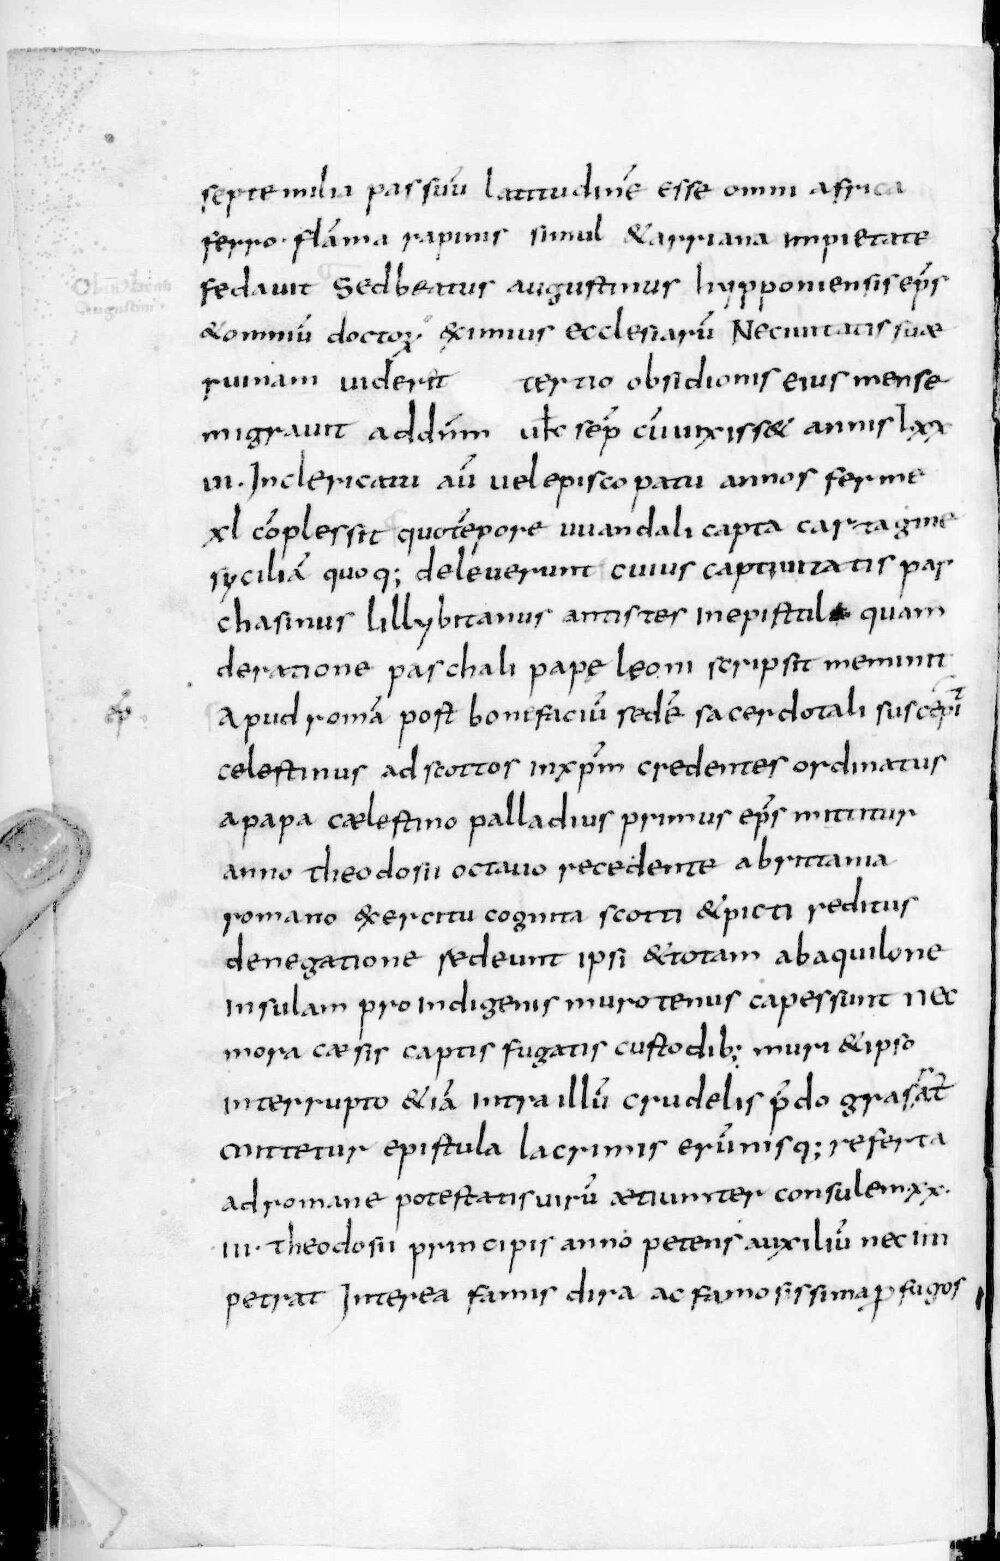 septemilia passuū latitudinē esse omni affrica
ferro· flāma rapinis simul &arriana impietate
fedavit Sedbeatus augustinus hypponiensis ep̄s
Augustini
&omniū doctoꝝ eximius ecclesiarū Necivitatis suæ
ruinam viderit tertio obsidionis eius mense
migravit addn̄m vt̄c sep̄ cūvixiss& annis lxx
vi· Inclericatu aū velepiscopatu annos ferme
xl cōplessit quotēpore vvandali capta cartagine
syciliā quoq; deleverunt cuius captivitatis pas
chasinus lillybitanus antistes inepistula quam
deratione paschali papę leoni scripsit meminit
Apud romā post bonifaciū sedē sacerdotali suscepit
celestinus ad scottos inxp̄m credentes ordinatus
apapa cælestino palladius primus ep̄s mittitur
anno theodosii octavo recedente abrittania
romano exercitu cognita scotti &picti reditus
denegatione redeunt ipsi &totam abaquilone
insulam pro indigenis murotenus capessunt nec
mora cæsis captis fugatis custodib; muri &ipso
interrupto &iā intra illū crudelis p̄do grasāt
mittetur epistula lacrimis erūnisq; referta
adromane potestatis virū ætiumter consulem xx·
iii· theodosii principis anno petens auxiliū nec im
petrat Interea famis dira ac famosissima ꝓfugos